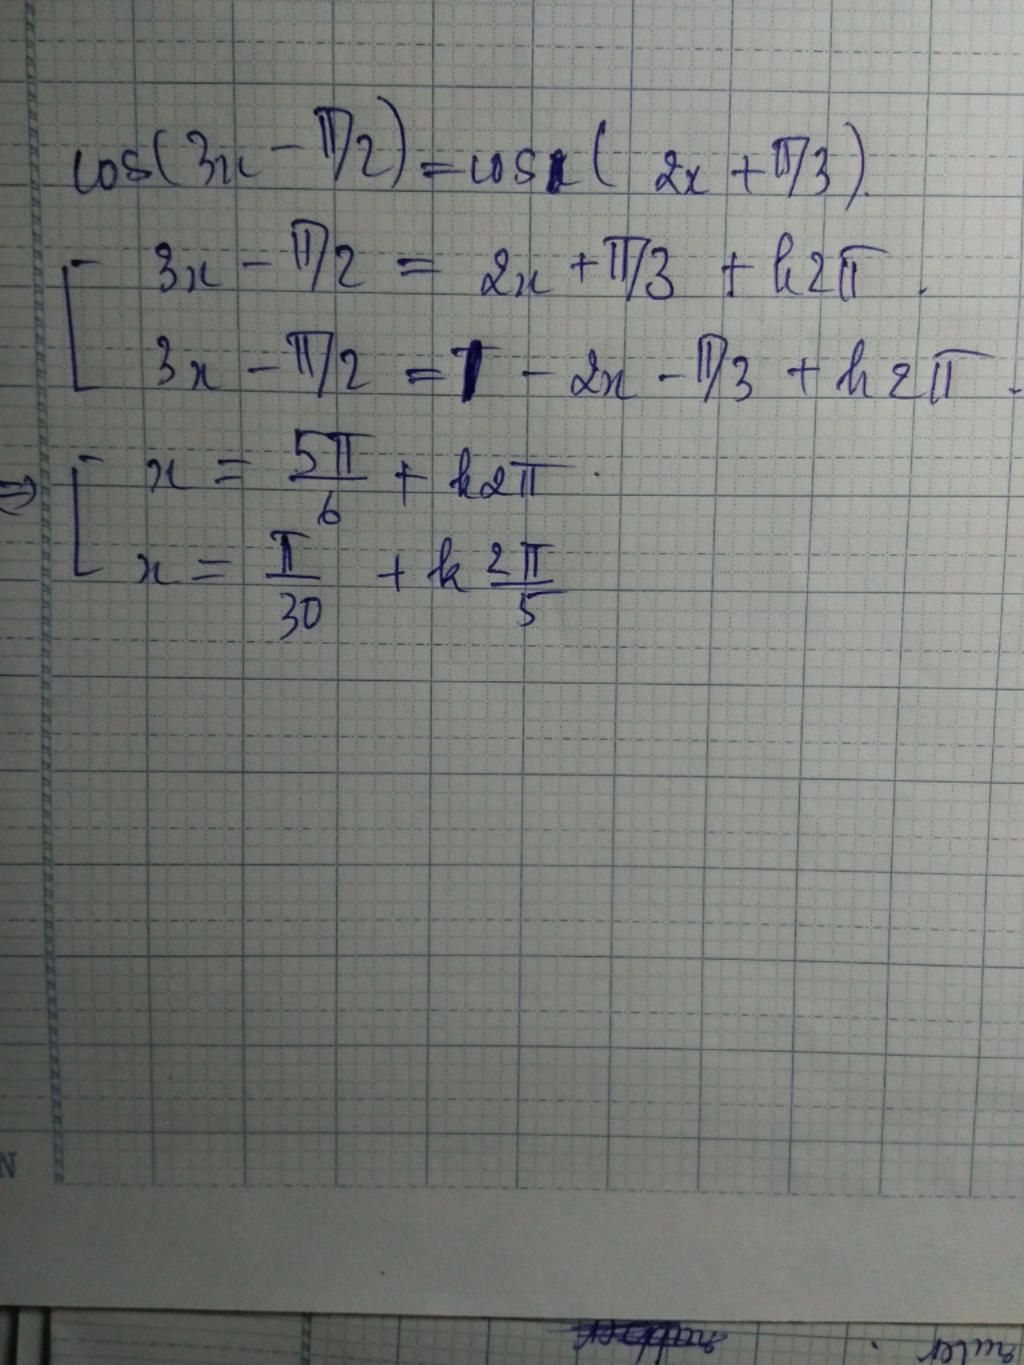 cos(3x - π/2) = cos ( 2x + π/3).
[ 3x - π/2 = 2x + π/3 + k2π.
3x - π/2 = - 2x - π/3 + k2π.
⇒ [ x = 5π/6 + k2π.
x = π/30 + k 2π/5
N